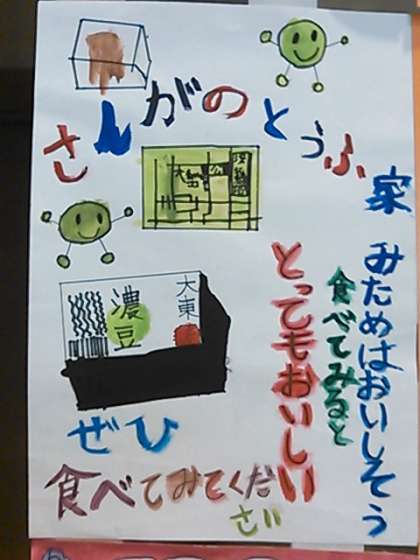 さんがのとうふ家
みためはおいしそう
食べてみると
とってもおいしい
大東
濃豆
ぜひ
食べてみてくだ
さい